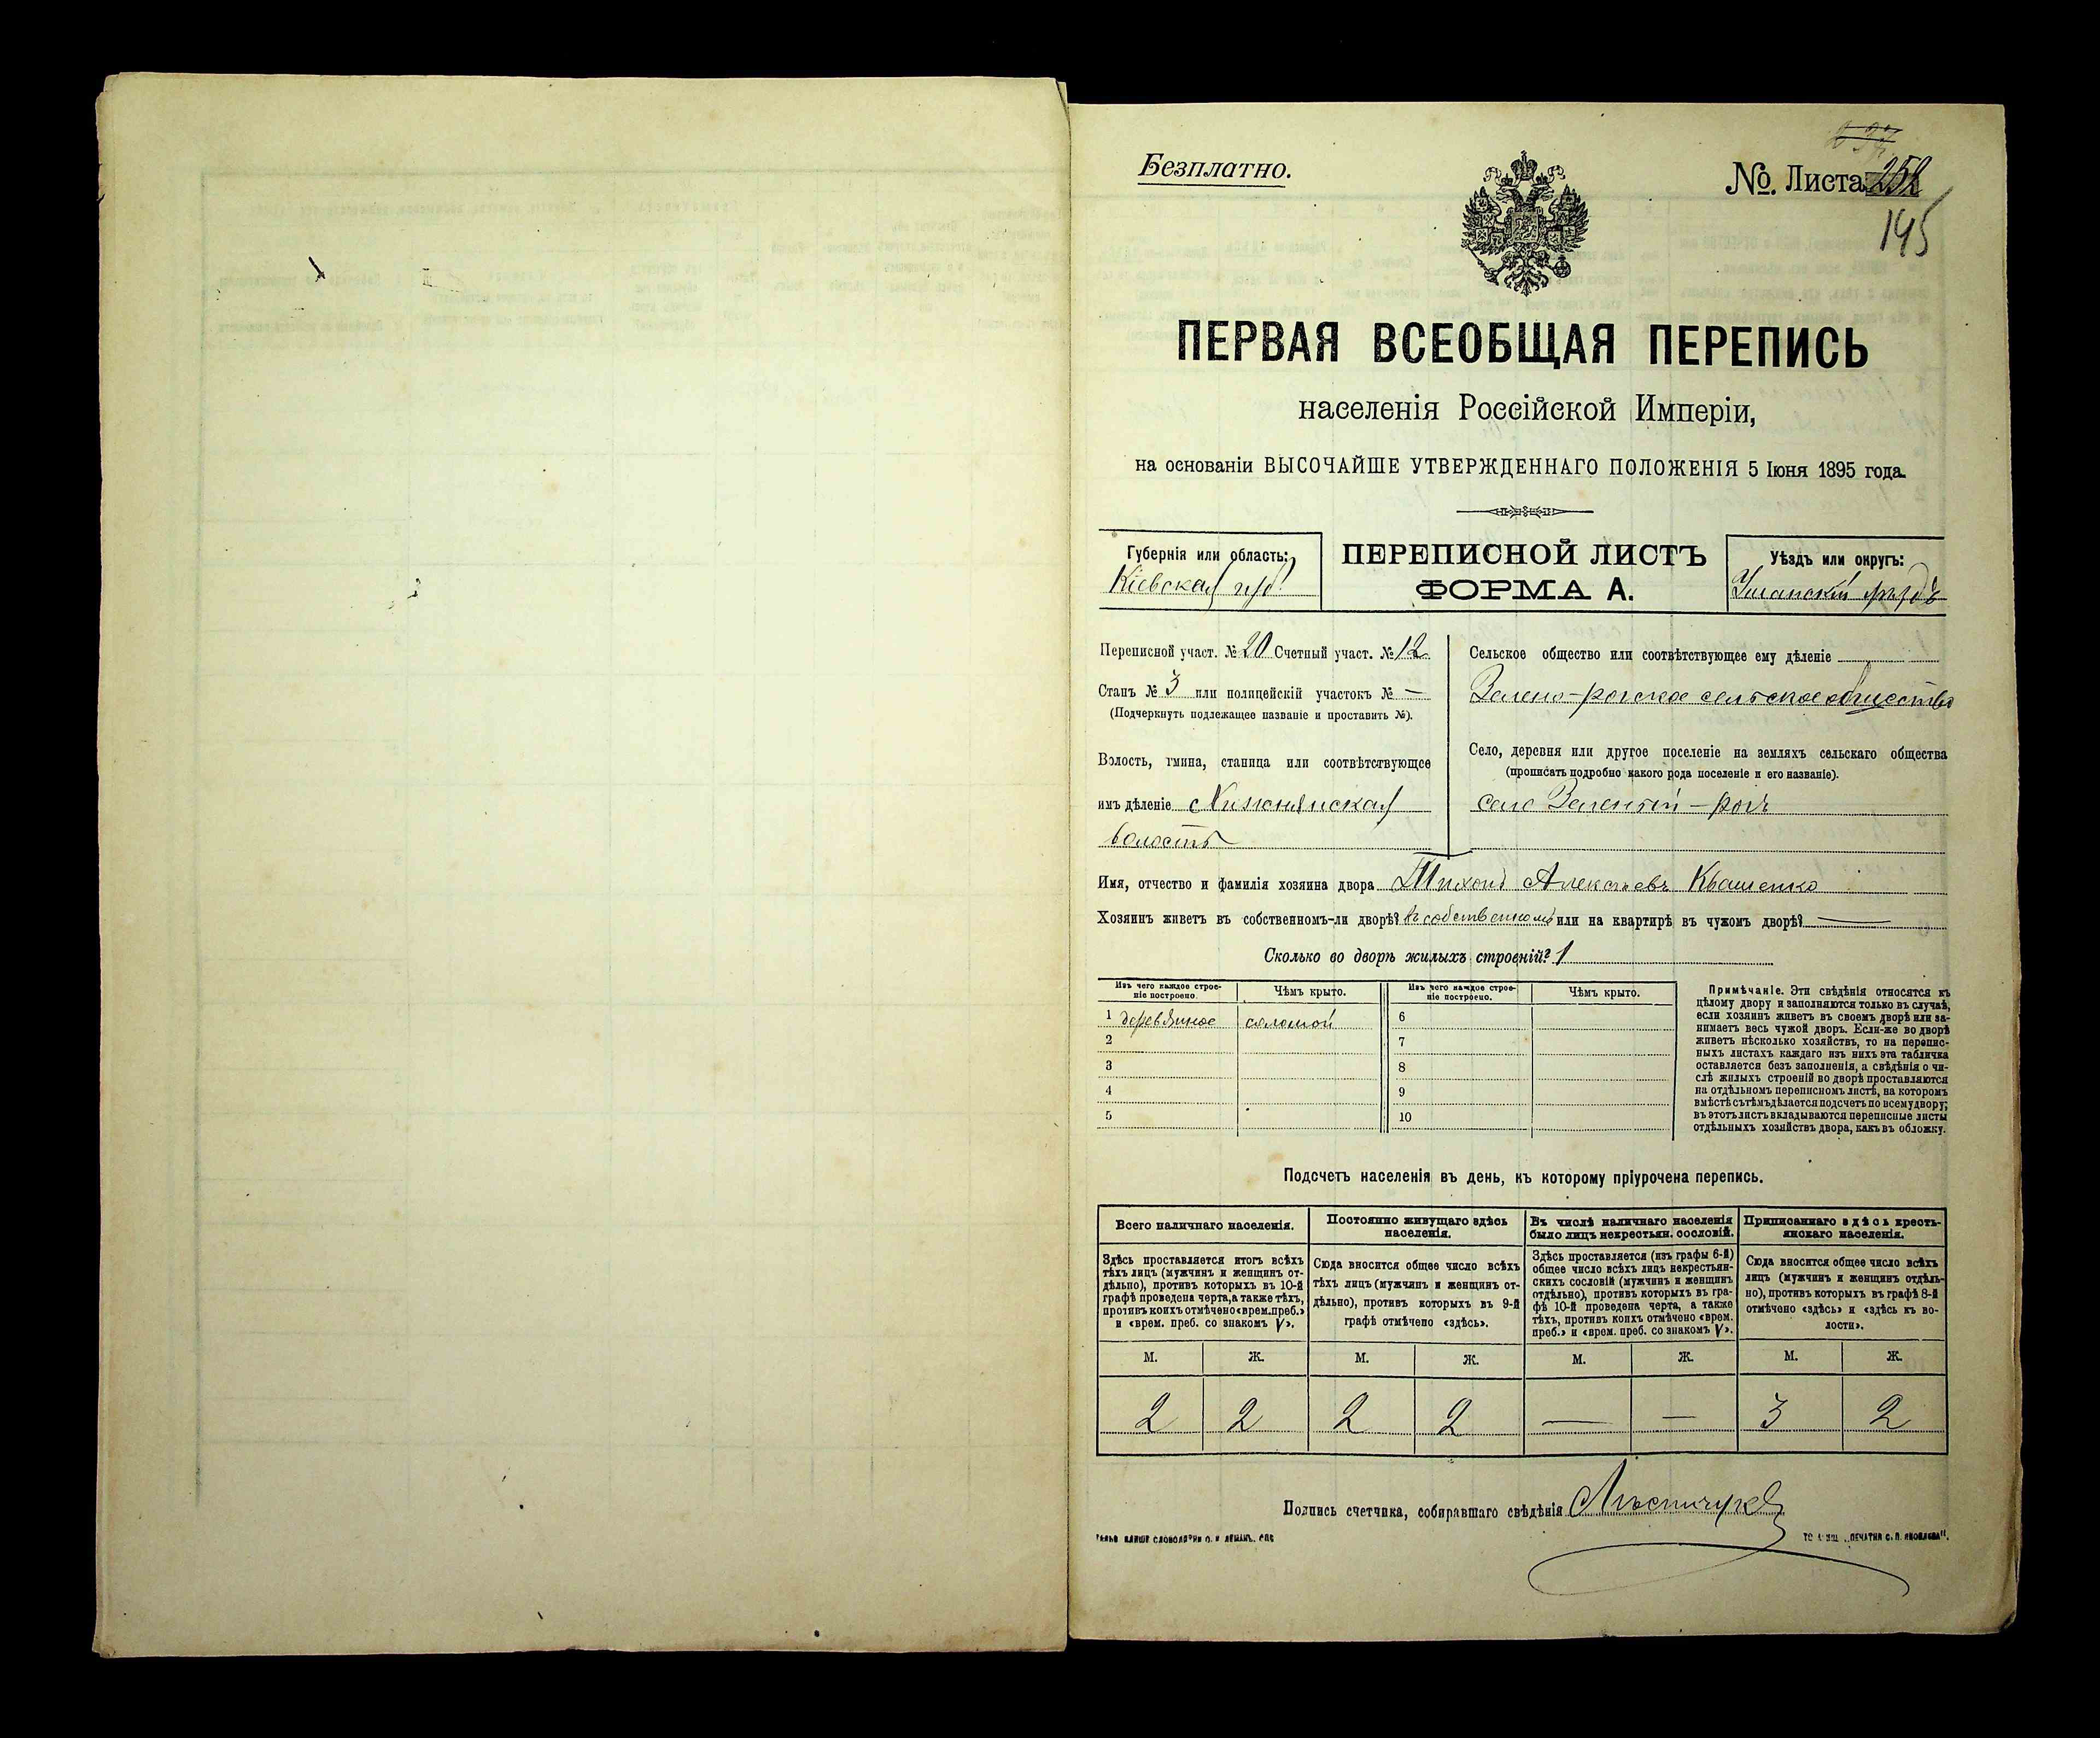 Безплатно.
№. Листа 252
145
ПЕРВАЯ ВСЕОБЩАЯ ПЕРЕПИСЬ
населенія Россійской Имперіи,
на основаніи ВЫСОЧАЙШЕ УТВЕРЖДЕННАГО ПОЛОЖЕНІЯ 5 Іюня 1895 года.
Губернія или область:
Кіевская губ.
ПЕРЕПИСНОЙ ЛИСТЪ
ФОРМА А.
Уѣздъ или округъ:
Уманскій уѣздъ
Переписной участ. № 20 Счетный участ. № 12
Станъ № 3 или полицейскій участокъ № —
(Подчеркнуть подлежащее названіе и проставить №).
Волость, гмина, станица или соотвѣтствующее
имъ дѣленіе
волость
Сельское общество или соотвѣтствующее ему дѣленіе
Зелено-рогское сельское общество
Село, деревня или другое поселеніе на земляхъ сельскаго общества
(прописать подробно какого рода поселеніе и его названіе).
село Зеленый-рогъ
Имя, отчество и фамилія хозяина двора Тихонъ Алексѣевъ Квашенко
Хозяинъ живетъ въ собственномъ-ли дворѣ? въ собственномъ или на квартирѣ въ чужомъ дворѣ? —
Сколько во дворѣ жилыхъ строеній? 1
Изъ чего каждое строе-
ніе построено.
Чѣмъ крыто.
Изъ чего каждое строе-
ніе построено.
Чѣмъ крыто.
1 деревянное соломой 6
2 7
3 8
4 9
5 10
Примѣчаніе. Эти свѣдѣнія относятся къ
цѣлому двору и заполняются только въ случаѣ,
если хозяинъ живетъ въ своемъ дворѣ или за-
нимаетъ весь чужой дворъ. Если-же во дворѣ
живетъ нѣсколько хозяйствъ, то на перепис-
ныхъ листахъ каждаго изъ нихъ эта табличка
оставляется безъ заполненія, а свѣдѣнія о чи-
слѣ жилыхъ строеній во дворѣ проставляются
на отдѣльномъ переписномъ листѣ, на которомъ
вмѣстѣ съ тѣмъ дѣлается подсчетъ по всему двору;
въ этотъ листъ вкладываются переписные листы
отдѣльныхъ хозяйствъ двора, какъ въ обложку.
Подсчетъ населенія въ день, къ которому пріурочена перепись.
Всего наличнаго населенія.
Здѣсь проставляется итогъ всѣхъ
тѣхъ лицъ (мужчинъ и женщинъ от-
дѣльно), противъ которыхъ въ 10-й
графѣ проведена черта, а также тѣхъ,
противъ коихъ отмѣчено «врем. преб.»
и «врем. преб. со знакомъ V».
Постоянно живущаго здѣсь
населенія.
Сюда вносится общее число всѣхъ
тѣхъ лицъ (мужчинъ и женщинъ от-
дѣльно), противъ которыхъ въ 9-й
графѣ отмѣчено «здѣсь».
Въ числѣ наличнаго населенія
было лицъ некрестьян. сословій.
Здѣсь проставляется (изъ графы 6-й)
общее число всѣхъ лицъ некрестьян-
скихъ сословій (мужчинъ и женщинъ
отдѣльно), противъ которыхъ въ гра-
фѣ 10-й проведена черта, а также
тѣхъ, противъ коихъ отмѣчено «врем.
преб.» и «врем. преб. со знакомъ V».
Приписаннаго здѣсь кресть-
янскаго населенія.
Сюда вносится общее число всѣхъ
лицъ (мужчинъ и женщинъ отдѣль-
но), противъ которыхъ въ графѣ 8-й
отмѣчено «здѣсь» и «здѣсь къ во-
лости».
М. Ж. М. Ж. М. Ж. М. Ж.
2 2 2 2 — — 3 2
Подпись счетчика, собиравшаго свѣдѣнія